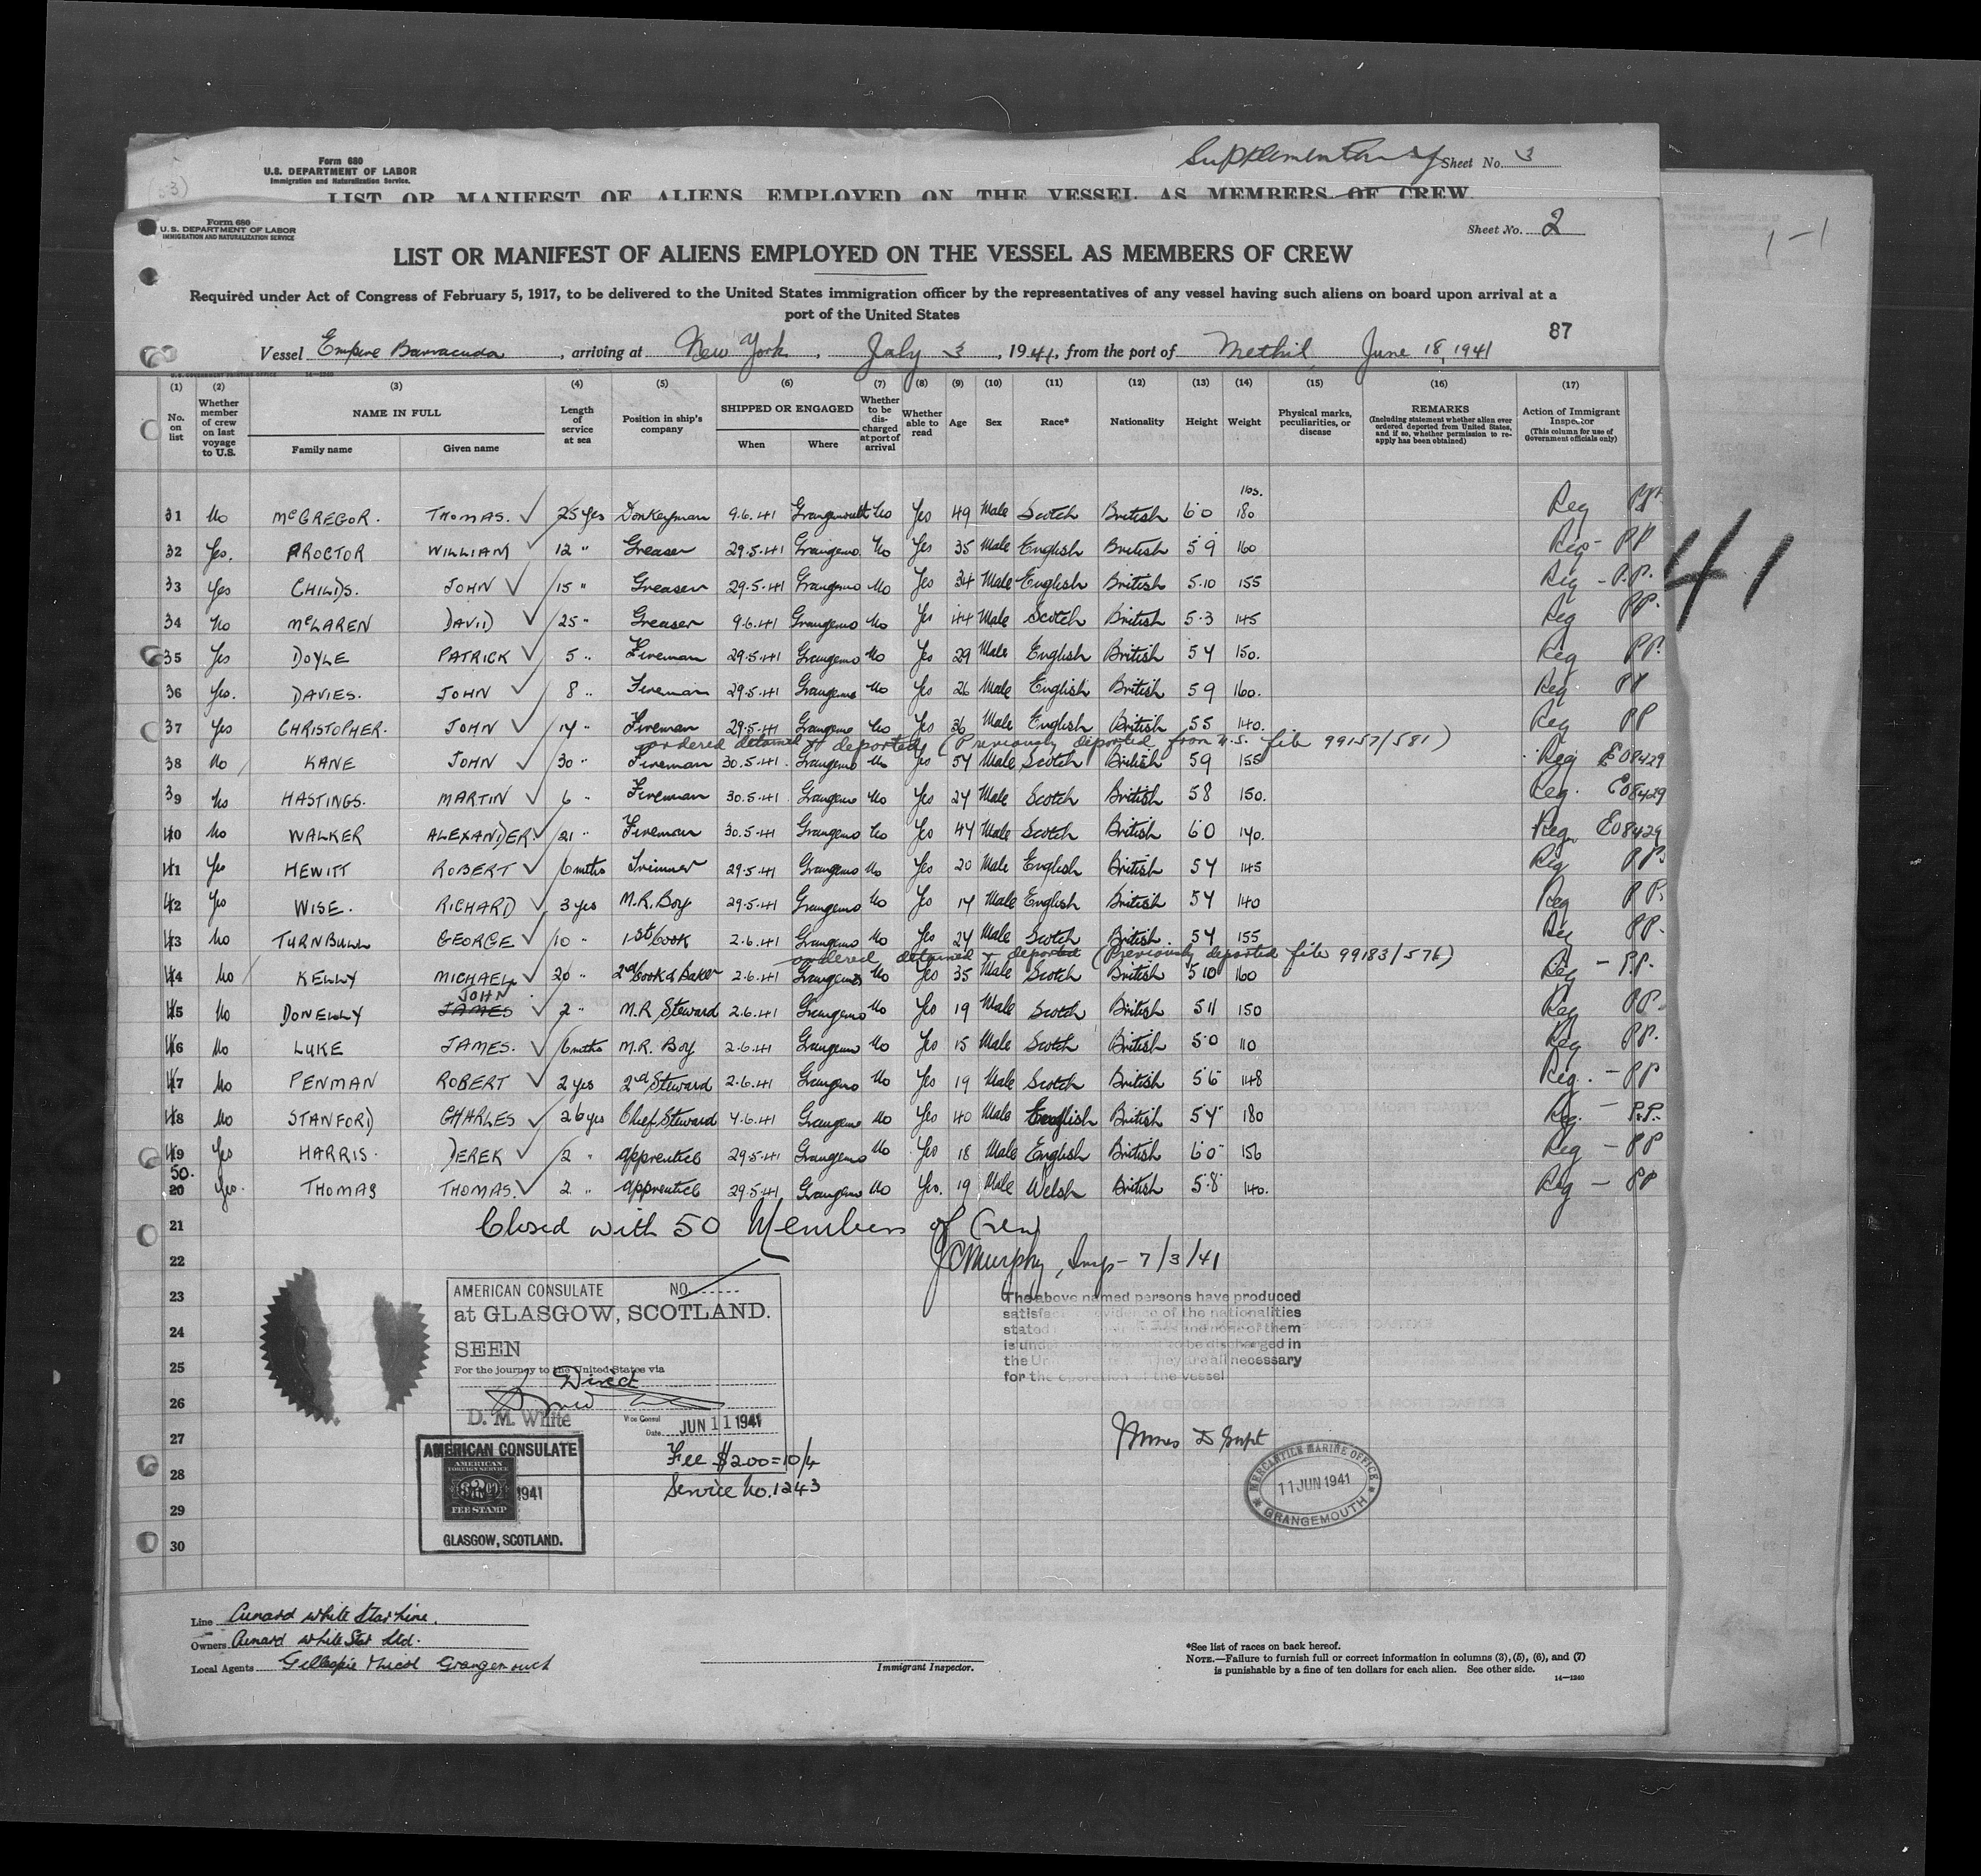 Form 680
U.S. DEPARTMENT OF LABOR
Immigration and Naturalization Service.
Supplementary Sheet No. 3
LIST OR MANIFEST OF ALIENS EMPLOYED ON THE VESSEL AS MEMBERS OF CREW
Form 680
U.S. DEPARTMENT OF LABOR
IMMIGRATION AND NATURALIZATION SERVICE
Sheet No. 2
LIST OR MANIFEST OF ALIENS EMPLOYED ON THE VESSEL AS MEMBERS OF CREW
Required under Act of Congress of February 5, 1917, to be delivered to the United States immigration officer by the representatives of any vessel having such aliens on board upon arrival at a
port of the United States
87
Vessel Empire Barracuda, arriving at New York, July 3, 1941, from the port of Methil June 18, 1941
(1) (2) (3) (4) (5) (6) (7) (8) (9) (10) (11) (12) (13) (14) (15) (16) (17)
No. on list
Whether member of crew on last voyage to U.S.
NAME IN FULL
Family name
Given name
Length of service at sea
Position in ship's company
SHIPPED OR ENGAGED
When
Where
Whether to be discharged at port of arrival
Whether able to read
Age
Sex
Race*
Nationality
Height
Weight
Physical marks, peculiarities, or disease
REMARKS
(Including statement whether alien ever ordered deported from United States, and if so, whether permission to reapply has been obtained)
Action of Immigrant Inspector
(This column for use of Government officials only)
lbs.
31 No McGREGOR. THOMAS. 25 yes Donkeyman 9.6.41 Grangemouth No Yes 49 Male Scotch British 6 0 180 Reg PP.
32 Yes. PROCTOR WILLIAM 12 " Greaser 29.5.41 Grangemo No Yes 35 Male English British 5 9 160 Reg - PP
33 Yes CHILDS. JOHN 15 " Greaser 29.5.41 Grangemo No Yes 34 Male English British 5.10 155 Reg - P.P.
34 No McLAREN DAVID 25 " Greaser 9.6.41 Grangemo No Yes 44 Male Scotch British 5.3 145 Reg PP.
35 Yes DOYLE PATRICK 5 " Fireman 29.5.41 Grangemo No Yes 29 Male English British 5 4 150. Reg PP.
36 Yes. DAVIES. JOHN 8 " Fireman 29.5.41 Grangemo No Yes 26 Male English British 5 9 160. Reg PP
37 Yes CHRISTOPHER. JOHN 14 " Fireman 29.5.41 Grangemo No Yes 36 Male English British 5 5 140. Reg PP
ordered detained & deported (Previously deported from U.S. file 99157/581)
38 No KANE JOHN 30 " Fireman 30.5.41 Grangemo No Yes 54 Male Scotch British 5 9 155 Reg E08429
39 No HASTINGS. MARTIN 6 " Fireman 30.5.41 Grangemo No Yes 24 Male Scotch British 5 8 150. Reg. E08429
40 No WALKER ALEXANDER 21 " Fireman 30.5.41 Grangemo No Yes 44 Male Scotch British 6 0 140. Reg E08429
41 Yes HEWITT ROBERT 6 mths Trimmer 29.5.41 Grangemo No Yes 20 Male English British 5 4 145 Reg PP.
42 Yes WISE. RICHARD 3 yes M.R. Boy 29.5.41 Grangemo No Yes 17 Male English British 5 4 140 Reg PP.
43 No TURNBULL GEORGE 10 " 1st Cook 2.6.41 Grangemo No Yes 24 Male Scotch British 5 4 155 Reg PP.
ordered detained & deported (Previously deported file 99183/576)
44 No KELLY MICHAEL 20 " 2nd Cook & Baker 2.6.41 Grangemo No Yes 35 Male Scotch British 5 10 160 Reg - PP.
JOHN
45 No DONELLY JAMES 2 " M.R. Steward 2.6.41 Grangemo No Yes 19 Male Scotch British 5 11 150 Reg PP.
46 No LUKE JAMES. 6 mths M.R. Boy 2.6.41 Grangemo No Yes 15 Male Scotch British 5 0 110 Reg PP.
47 No PENMAN ROBERT 2 yes 2nd Steward 2.6.41 Grangemo No Yes 19 Male Scotch British 5 6 148 Reg. - PP
48 No STANFORD CHARLES 26 yes Chief Steward 4.6.41 Grangemo No Yes 40 Male English British 5 4 180 Reg. - P.P.
49 Yes HARRIS. DEREK 2 " apprentice 29.5.41 Grangemo No Yes 18 Male English British 6 0 156 Reg - PP
50. 20 Yes. THOMAS THOMAS. 2 " apprentice 29.5.41 Grangemo No Yes. 19 Male Welsh British 5.8 140. Reg - PP
41
1-1
21 Closed with 50 Members of Crew
22 J C Murphy, Insp - 7/3/41
23
24
25
26
27
28
29
30
AMERICAN CONSULATE NO.
at GLASGOW, SCOTLAND.
SEEN
For the journey to the United States via
Direct
D. M. White
Vice Consul
Date JUN 11 1941
Fee $2.00 = 10/4
Service No. 1243
AMERICAN CONSULATE
AMERICAN
FOREIGN SERVICE
$2.00
1941
FEE STAMP
GLASGOW, SCOTLAND.
The above named persons have produced
satisf evidence of the nationalities
stated and none of them
is und to be discharged in
the Un they are all necessary
for the operation of the vessel
D Supt
MERCANTILE MARINE OFFICE
11 JUN 1941
GRANGEMOUTH
Line Cunard White Star Line.
Owners Cunard White Star Ltd.
Local Agents Gillespie Nicol Grangemouth
Immigrant Inspector.
*See list of races on back hereof.
NOTE.—Failure to furnish full or correct information in columns (3), (5), (6), and (7)
is punishable by a fine of ten dollars for each alien. See other side.
14—1240